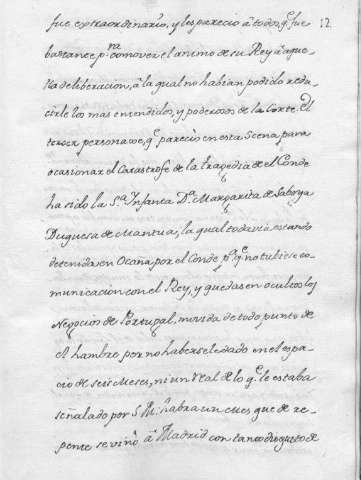 fue extraordinario, y les pareció á todos, q.e fue 12
bastante p.ra comover el animo de su Rey á aque-
lla deliberacion, á la qual no habian podido redu-
cirle los mas entendidos, y poderosos de la Corte. El
tercer personage, q.e pareció en esta Scena para
ocasionar el Catastrofe de la tragedia de el Conde
ha sido la S.ra Infanta D.a Margarita de Saboya
Duquesa de Mantua, la qual todavia estando
detenida en Ocaña por el Conde p.r q.e no tubiese co-
municacion con el Rey, y quedasen ocultos los
Negocios de Portugal, movida de todo punto de
el hambre por no haversele dado en el espa-
cio de seis Meses, ni un Real de lo q.e le estaba
señalado por S. M. habra un mes que de re-
pente se vino á Madrid con tanto disgusto de